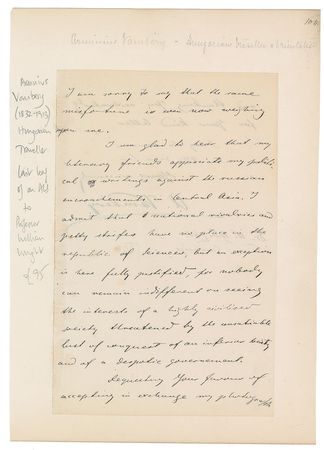 Arminius Vambéry - Hungarian Traveller & Orientalist
Arminius
Vambery
(1832-1913)
Hungarian
Traveller
Last leg
of an ALS
to
Professor
William
Wright
£95
I am sorry to say that the same
misfortune is even now weighing
upon me.
I am glad to hear that my
literary friends appreciate my politi-
cal writings against the russian
encroachments in Central Asia. I
admit that national rivalries and
petty strifes have no place in the
republic of Sciences, but an exception
is here fully justified, for nobody
can remain indifferent on seeing
the interests of a highly civilised
society threatened by the insatiable
lust of conquest of an inferior
and of a despotic governement.
Requesting Your favour of
accepting in exchange my photograph